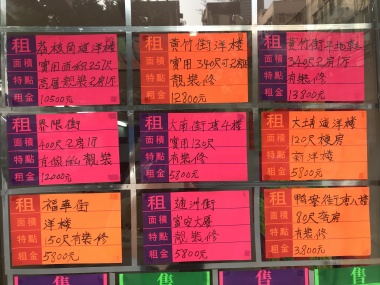 租 荔枝角道洋樓
面積 實用面积257尺
特點 高層靚裝2房1厅
租金 10500元
租 黃竹街洋樓
面積 實用340尺可2房
特點 靚裝修
租金 12800元
租 黃竹街
面積 340尺2房1厅
特點 有裝修
租金 13800元
租 界限街
面積 400尺2房1厅
特點 靚裝
租金 12000元
租 大南街
面積 實用130尺
特點 有裝修
租金 5800元
租 大埔道洋樓
面積 120尺梗房
特點 新洋樓
租金 5800元
租 福華街
面積 洋樓
特點 150尺有裝修
租金 5800元
租 通洲街
面積 富安大厦
特點 靚裝修
租金 5800元
租 鴨寮街唐八樓
面積 80尺套房
特點 有裝修
租金 3800元
售
售
售